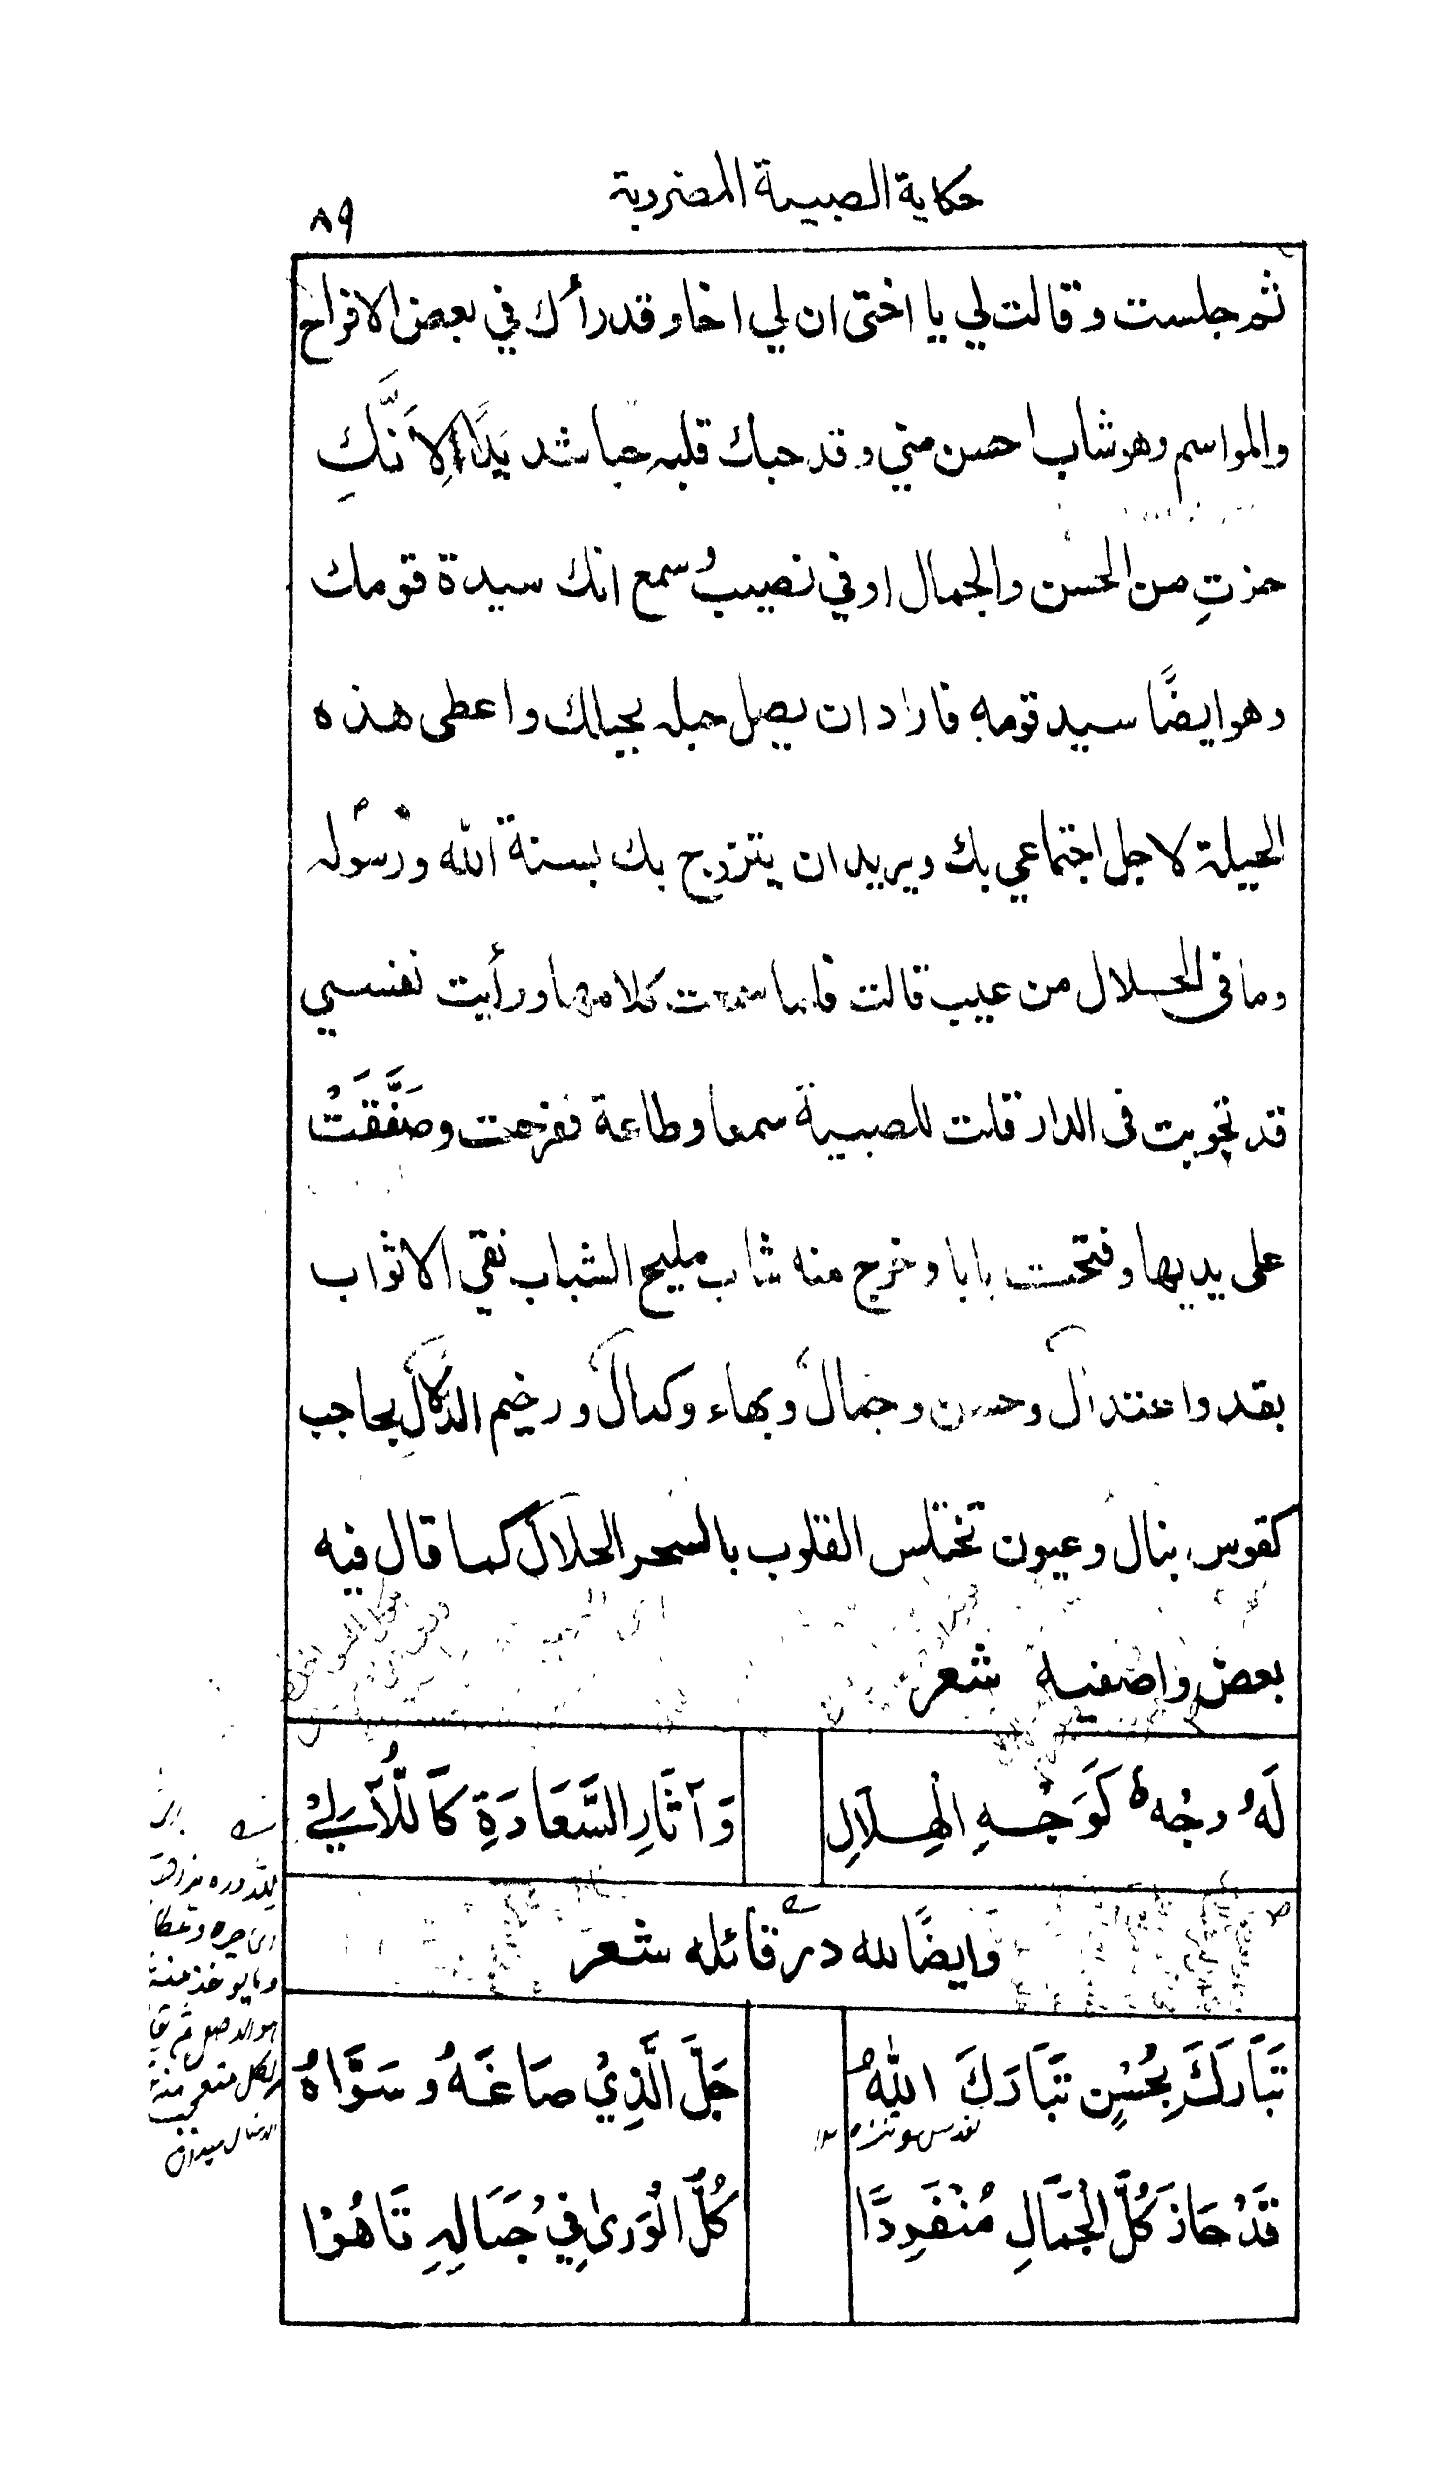 حكاية الصبية المضروبة
٨٩
ثم جلست وقالت لي يا اختى ان لي اخا وقد رأك في بعض الافراح
والمواسم وهو شاب احسن مني وقد حبك قلبه حبا شديدًا لِاَنَّكِ
حزتِ من الحسن والجمال اوفي نصيب وسمع انك سيدة قومك
وهو ايضًا سيد قومه فاراد ان يصل حبله بحبالك واعطى هذه
الحيلة لاجل اجتماعي بك ويريد ان يتزوج بك بسنة الله ورسوله
وما فى الحلال من عيب قالت فلما سمعت كلامها ورأيت نفسي
قد تحوبت فى الدار قلت للصبية سمعا وطاعة ففرحت وصَفَّقَتْ
على يديها وفتحت بابا وخرج منه شاب مليح الشباب نقي الاثواب
بقد واعتدال وحسن وجمال وبهاء وكمال ورخيم الدلال بحاجب
كقوس نبال وعيون تختلس القلوب بالسحر الحلال كما قال فيه
بعض واصفيه شعر
لَهُ وجْهٌ كَوَجْهِ الْهِلَالِ وَآثَارِ السَّعَادَةِ كَاَللُّآلِيْ
وايضًا لله درّ قائله شعر
تَبَارَكَ بِحُسْنٍ تَبَارَكَ اللهُ جَلَّ الَّذِيْ صَاغَهُ وسَوَّاهُ
قَدْ حَازَ كُلَّ الْجَمَالِ مُنْفَرِدًا كُلُّ الْوَرىٰ فِيْ جَمَالِهِ تَاهُوْا